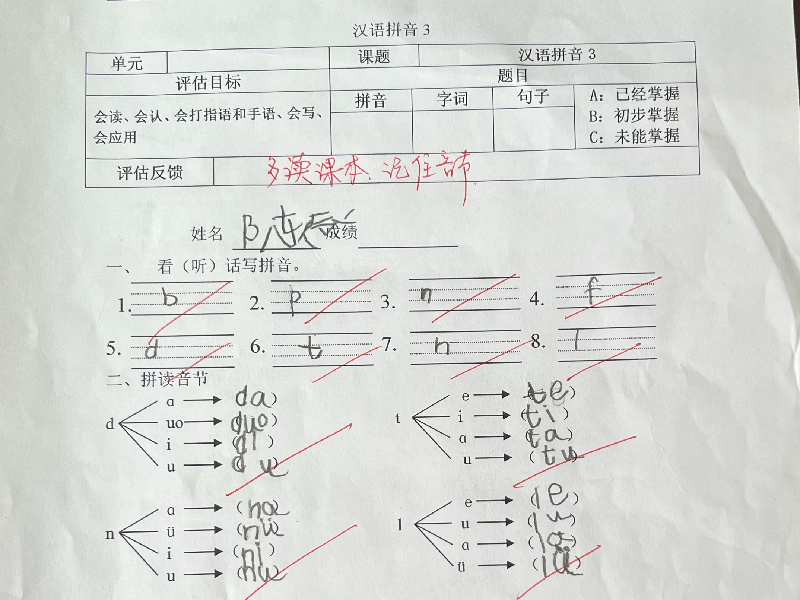 汉语拼音3
单元 课题 汉语拼音3
评估目标 题目
会读、会认、会打指语和手语、会写、会应用 拼音 字词 句子 A：已经掌握
B：初步掌握
C：未能掌握
评估反馈 多读课本、记住音节
姓名 成绩
一、 看（听）话写拼音。
1. b 2. p 3. n 4. f
5. d 6. t 7. n 8. l
二、拼读音节
d
a da）
uo （duo）
i （di）
u （du）
t
e （te）
i （ti）
a （ta）
u （tu）
n
a （na
ü （nü
i （ni）
u （nu）
l
e （le）
u （lu
a （la）
ü （lü）